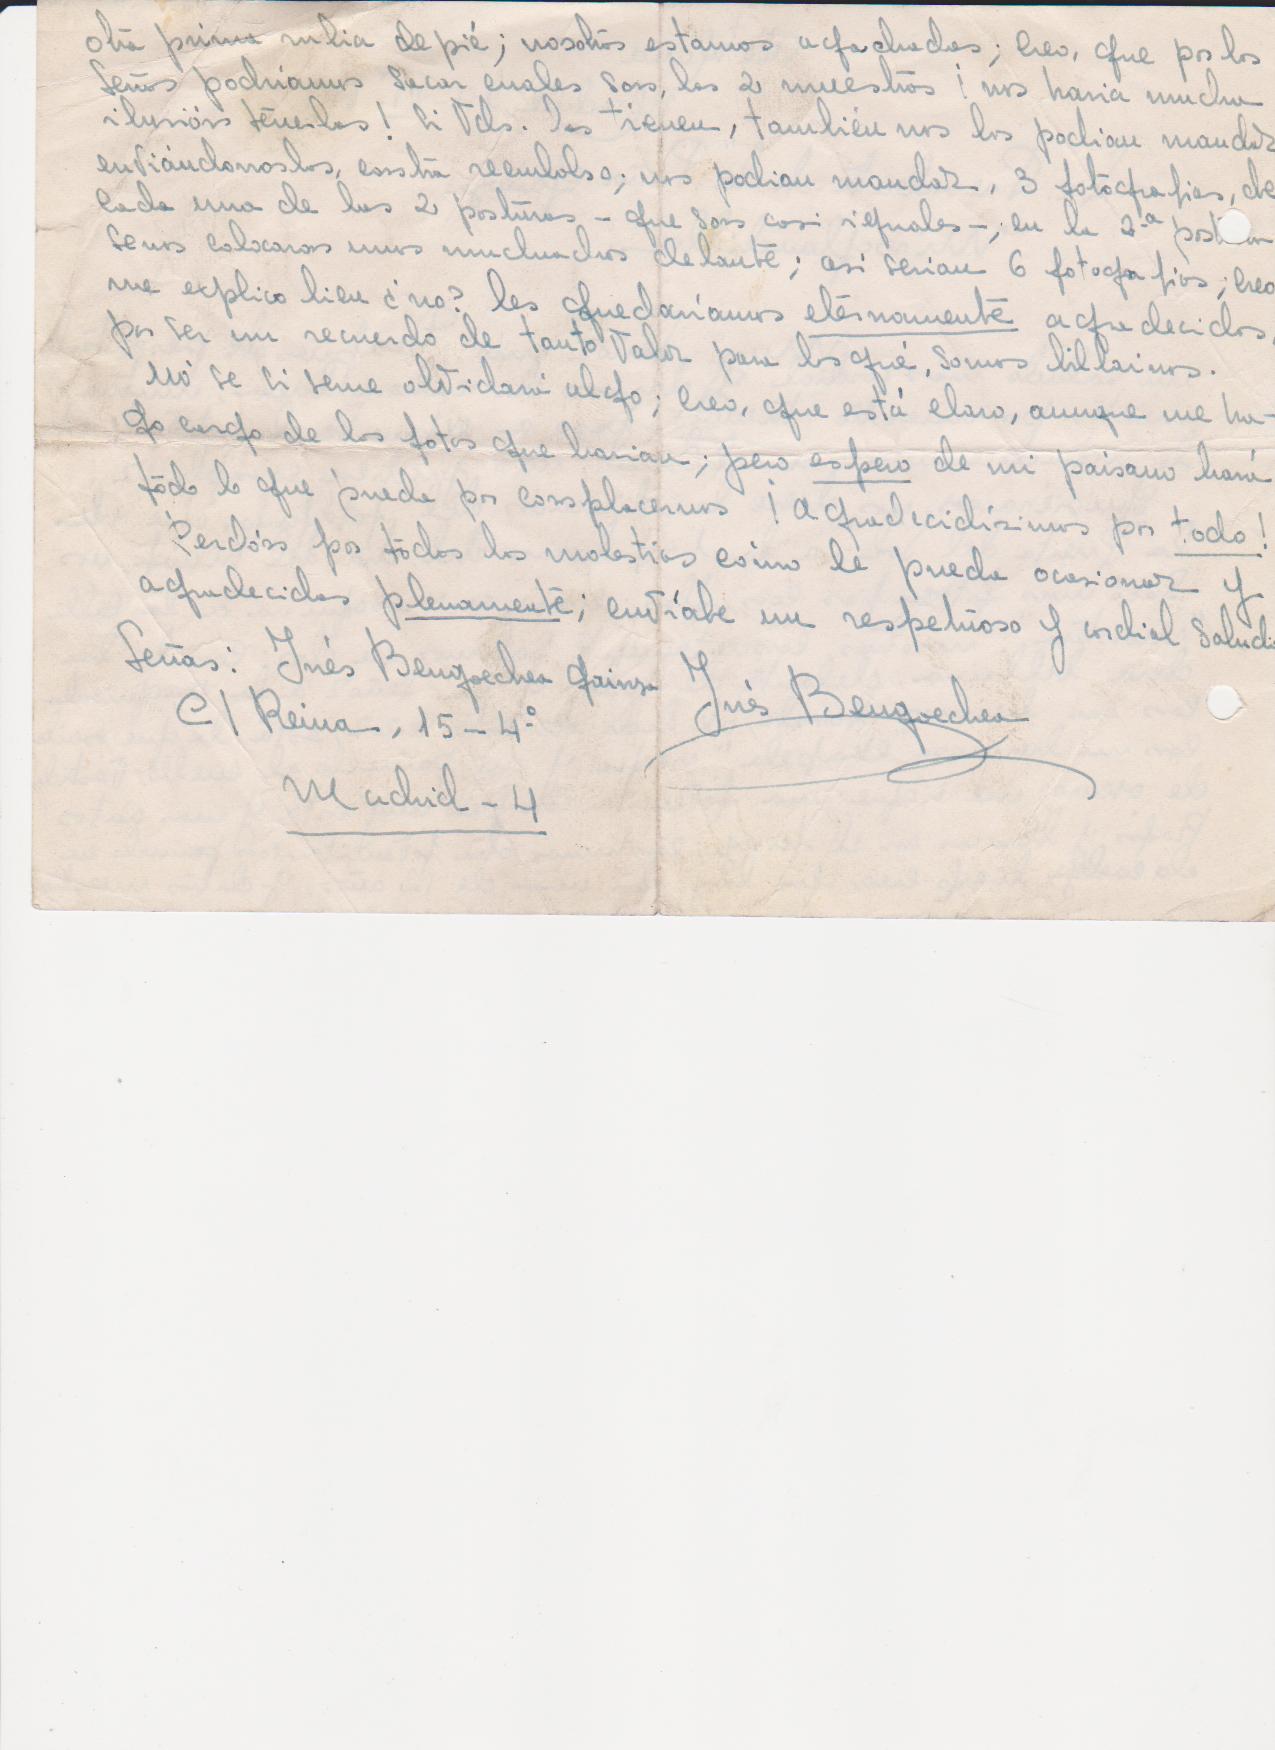 otra prima rubia de pié; nosotros estamos agachadas; creo, que por las
señas podríamos sacar cuales son, las 2 nuestras ¡ nos haria mucha
ilusión tenerlas! Si Vds. las tienen, también nos las podian mandar
enviándonoslas, contra reembolso; nos podian mandar, 3 fotografias, de
cada una de las 2 posturas - que son casi iguales -; en la 2ª postura
se nos colocaron unos muchachos delante; asi serian 6 fotografias; creo
me explico bien ¿no? les quedaríamos eternamente agradecidos,
por ser un recuerdo de tanto valor para los qué, somos
No se si seme olvidará algo; creo, que está claro, aunque me ha-
go cargo de las fotos que harian; pero espero de mi paisano hará
todo lo que pueda por complacernos ¡ agradecidísimos por todo!
Perdón por todas las molestias cómo le pueda ocasionar y
agradecidas plenamente; envíale un respetuoso y cordial saludo
Señas: Inés Bengoechea Gainza Inés Bengoechea
C/ Reina, 15 - 4º
Madrid - 4